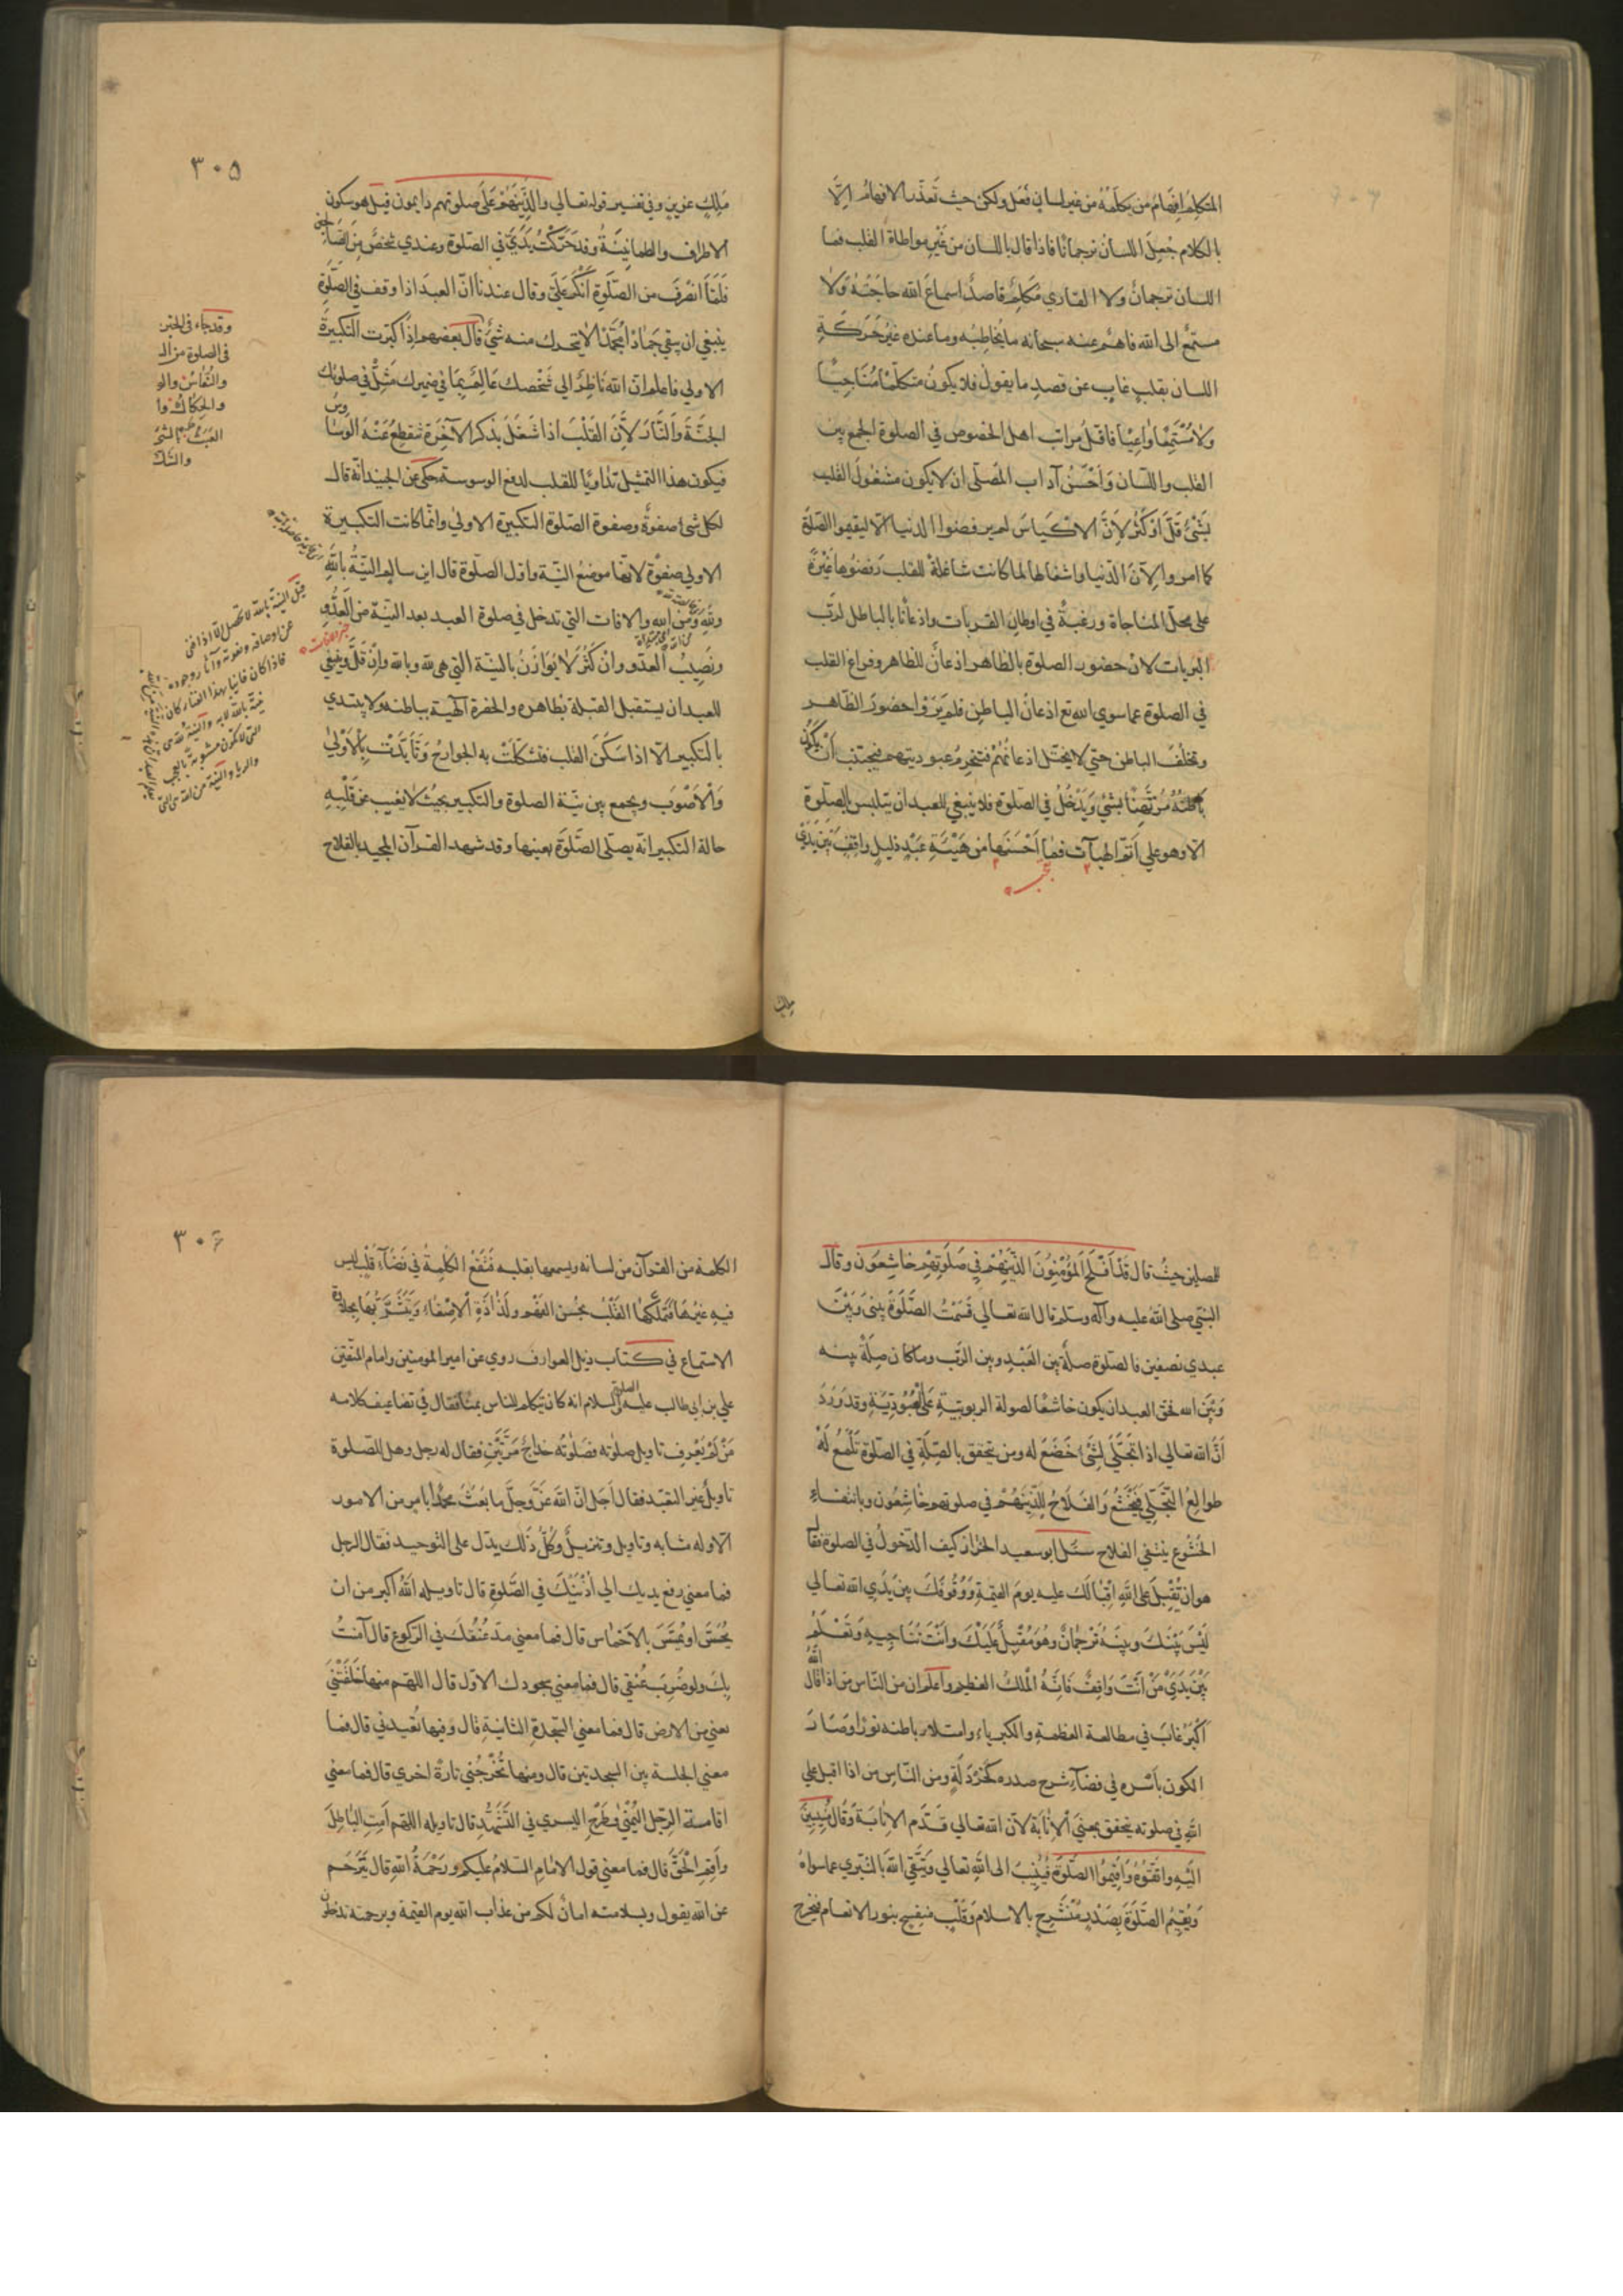 المتكلم افهام من يكلمه من غير لسان فعل ولكن حيث تعذر الافهام الا
بالكلام جعل اللسان ترجمانا فاذا قال باللسان من غير مواطاة القلب فما
اللسان ترجمان ولا القاري متكلم قاصد اسماع الله حاجته ولا
مستمع الى الله فاهم عنه سبحانه ما يخاطبه وما عنده غير حركة
اللسان بقلب غايب عن قصد ما يقول فلا يكون متكلما مناجيا
ولا مستمعا واعيا فاقل مراتب اهل الخصوص في الصلوة الجمع بين
القلب واللسان واحسن آداب المصلى ان لا يكون مشغول القلب
بشئ قل او كثر لان الاكياس لم يرفضوا الدنيا الا ليقيموا الصلوة
كما امروا لان الدنيا واشغالها لما كانت شاغلة للقلب رفضوها غيرة
على محل المناجاة ورغبة في اوطان القربات واذعانا بالباطن لرب
البريات لان حضور الصلوة بالظاهر اذعان للظاهر وفراغ القلب
في الصلوة عما سوى الله تع اذعان الباطن فلم يروا حضور الظاهر
وتخلف الباطن حتي لا يختل اذعانهم فتنخرم عبوديتهم فيجتنب ان يكون
باطنه مرتهنا بشئ ويدخل في الصلوة فلا ينبغي للعبد ان يتلبس بالصلوة
الا وهو على اتم الهيآت فما احسنها من هيئة عبد ذليل واقف بين يدي
ملك
٣٠٥
ملك عزيز وفي تفسير قوله تعالي والذينهم على صلوتهم دايمون قيل هو سكون
الاطراف والطمانينة وقد حركت يدي في الصلوة وعندي شخص من الصالحين
فلما انصرف من الصلوة انكر على وقال عندنا ان العبد اذا وقف في الصلوة
ينبغي ان يبقي جمادا مجمدا لا يتحرك منه شئ قال بعضهم اذا كبرت التكبيرة
الاولي فاعلم ان الله ناظر الي شخصك عالم بما في ضميرك مثل في صلوتك
الجنة والنار لان القلب اذا شغل بذكر الآخرة تنقطع عنه الوساوس
فيكون هذا التمثيل تداويا للقلب لدفع الوسوسة حكى عن الجنيد انه قال
لكل شئ صفوة وصفوة الصلوة التكبيرة الاولي وانما كانت التكبيرة
الاولي صفوة لانها موضع النية واول الصلوة قال ابن سالم النية بالله
ولله ومن الله والافات التي تدخل في صلوة العبد بعد النية من العدو
ونصيب العدو وان كثر لا يوازن بالنية التي هي لله وبالله وان قل وينبغي
للعبد ان يستقبل القبلة بظاهره والحضرة الالهية بباطنه ولا يبتدي
بالتكبير الا اذا سكن القلب فتشكلت به الجوارح وتأيدت بالاولى
والاصوب ويجمع بين نية الصلوة والتكبير بحيث لا يغيب عن قلبه
حالة التكبير انه يصلى الصلوة بعينها وقد شهد القرآن المجيد بالفلاح
وقد جاء في الخبر
في الصلوة من الـ
والنعاس والو
والحكاك وا
والشك
قيل النية بالله لا تحصل الا اذا فنى
عن اوصافه ونعوته وآثار وجوده
للمصلين حيث قال قد افلح المؤمنون الذينهم في صلوتهم خاشعون وقال
النبي صلى الله عليه وآله وسلم قال الله تعالي قسمت الصلوة بيني وبين
عبدي نصفين فالصلوة صلة بين العبد وبين الرب وما كان صلة بينه
وبين الله فحق العبد ان يكون خاشعا لصولة الربوبية على العبودية وقد ورد
ان الله تعالي اذا تجلي لشئ خضع له ومن يتحقق بالصلة في الصلوة تلمع له
طوالع التجلي فيخشع والفلاح للذينهم في صلوتهم خاشعون وبانتفاء
الخشوع ينتفي الفلاح سئل ابو سعيد الخراز كيف الدخول في الصلوة فقال
هو ان تقبل على الله اقبالك عليه يوم القيمة ووقوفك بين يدي الله تعالي
ليس بينك وبينه ترجمان وهو مقبل عليك وانت تناجيه وتعلم
بين يدي من انت واقف فانه الملك العظيم واعلم ان من الناس من اذا قال الله
اكبر غاب في مطالعة العظمة والكبرياء وامتلاء باطنه نورا وصار
الكون باسره في فضآء شرح صدره كخردلة ومن الناس من اذا اقبل على
الله في صلوته يتحقق بمعنى الانابة لان الله تعالي قدم الانابة وقال منيبين
اليه واتقوه واقيموا الصلوة فينيب الى الله تعالي ويتقي الله بالتبري عما سواه
ويقيم الصلوة بصدر منشرح بالاسلام وقلب منفسح بنور الانعام فيخرج
٣٠٦
الكلمة من القرآن من لسانه ويسمعها بقلبه فتقع الكلمة في فضآء قلب ليس
فيه غيرها فيتملكها القلب بحسن الفهم ولذاذة الاصغاء ويتشربها بحلاوة
الاستماع في كتاب ذيل العوارف روي عن امير المومنين وامام المتقين
علي بن ابي طالب عليه الصلوة والسلام انه كان يتكلم للناس بمنا فقال في تضاعيف كلامه
من لم يعرف تاويل صلوته فصلوته خداج مرتين فقال له رجل وهل للصلوة
تاويل غير التعبد فقال اجل ان الله عز وجل ما بعث محمدا بامر من الامور
الا وله مشابه وتاويل وتنزيل وكل ذلك يدل على التوحيد فقال الرجل
فما معني رفع يديك الي اذنيك في الصلوة قال تاويله الله اكبر من ان
يحس او يمس بالاخماس قال فما معني مد عنقك في الركوع قال آمنت
بك ولو ضربت عنقي قال فما معني سجودك الاول قال اللهم منها خلقتني
يعني من الارض قال فما معني السجدة الثانية قال وفيها تعيدني قال فما
معني الجلسة بين السجدتين قال ومنها تخرجني تارة اخري قال فما معني
اقامة الرجل اليمني وطرح اليسري في التشهد قال تاويله اللهم امت الباطل
واقم الحق قال فما معني قول الامام السلام عليكم ورحمة الله قال يترحم
عن الله يقول وبسلامته امان لكم من عذاب الله يوم القيمة وبرحمته تدخلون